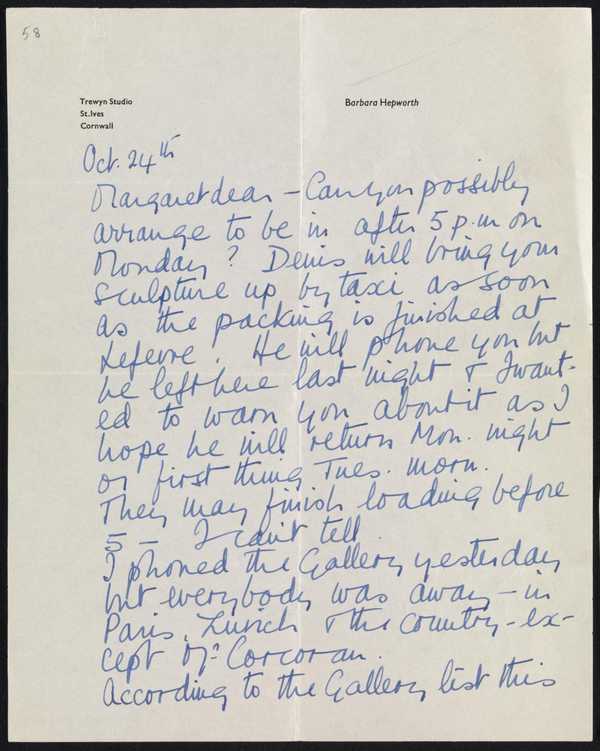 58
Trewyn Studio
St.Ives
Cornwall
Barbara Hepworth
Oct. 24th
Margaret dear – Can you possibly
arrange to be in after 5 p.m on
Monday? Denis will bring your
sculpture up by taxi as soon
as the packing is finished at
Lefevre. He will phone you but
he left here last night & I want-
ed to warn you about it as I
hope he will return Mon. night
or first thing Tues. morn.
They may finish loading before
5 – I can't tell.
I phoned the Gallery yesterday
but everybody was away – in
Paris, Zurich & the country – ex-
cept Mr Corcoran.
According to the Gallery list this